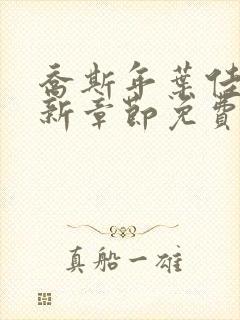 喬斯年葉佳
新章節免費
真船一雄